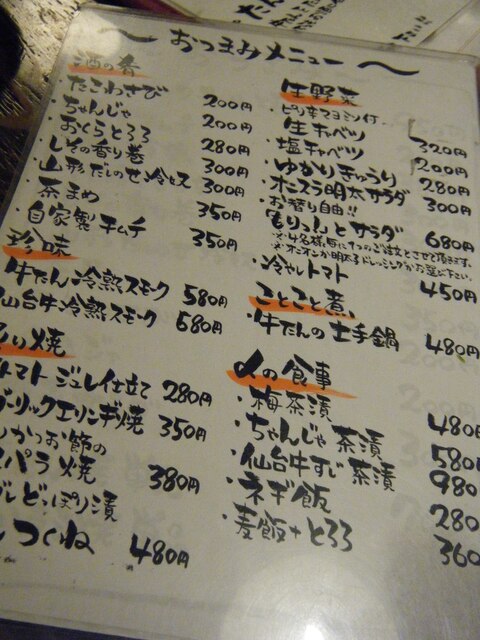 〜おつまみメニュー〜
酒の肴
たこわさび 200円
・ちゃんじゃ 200円
・おくらとろろ 280円
・しその香り巻 300円
・山形だしのせ冷とス 300円
・茶まめ 350円
・自家製キムチ 350円
珍味
牛たん冷熟スモーク 580円
仙台牛冷熟スモーク 680円
焼
トマトジュレ仕立て 280円
ガーリックエリンギ焼 350円
かつお節の
スパラ焼 380円
ぽり漬
つくね 480円
生野菜
・ピリ辛マヨミソ付
生キャベツ 320円
・塩キャベツ 200円
・ゆかりきゅうり 280円
・オニスラ明太サラダ 300円
・お替り自由!!
もりっんとサラダ 680円
※4名様毎に1つのご注文とさせて頂きます。
※オニオンか明太子ドレッシングがお選び下さい。
・冷やしトマト 450円
ことこと煮
・牛たんの土手鍋 480円
〆の食事
・梅茶漬 480円
・ちゃんじゃ茶漬 580円
・仙台牛すじ茶漬 980
・ネギ飯 280
・麦飯+とろろ 360